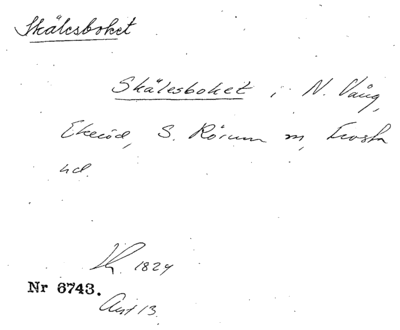 Skälesboket
Skälesboket i N. Vång,
Ekeröd, S. Rörum sn, Frosta
hd.
1824
Nr 6743.
Avs 13.